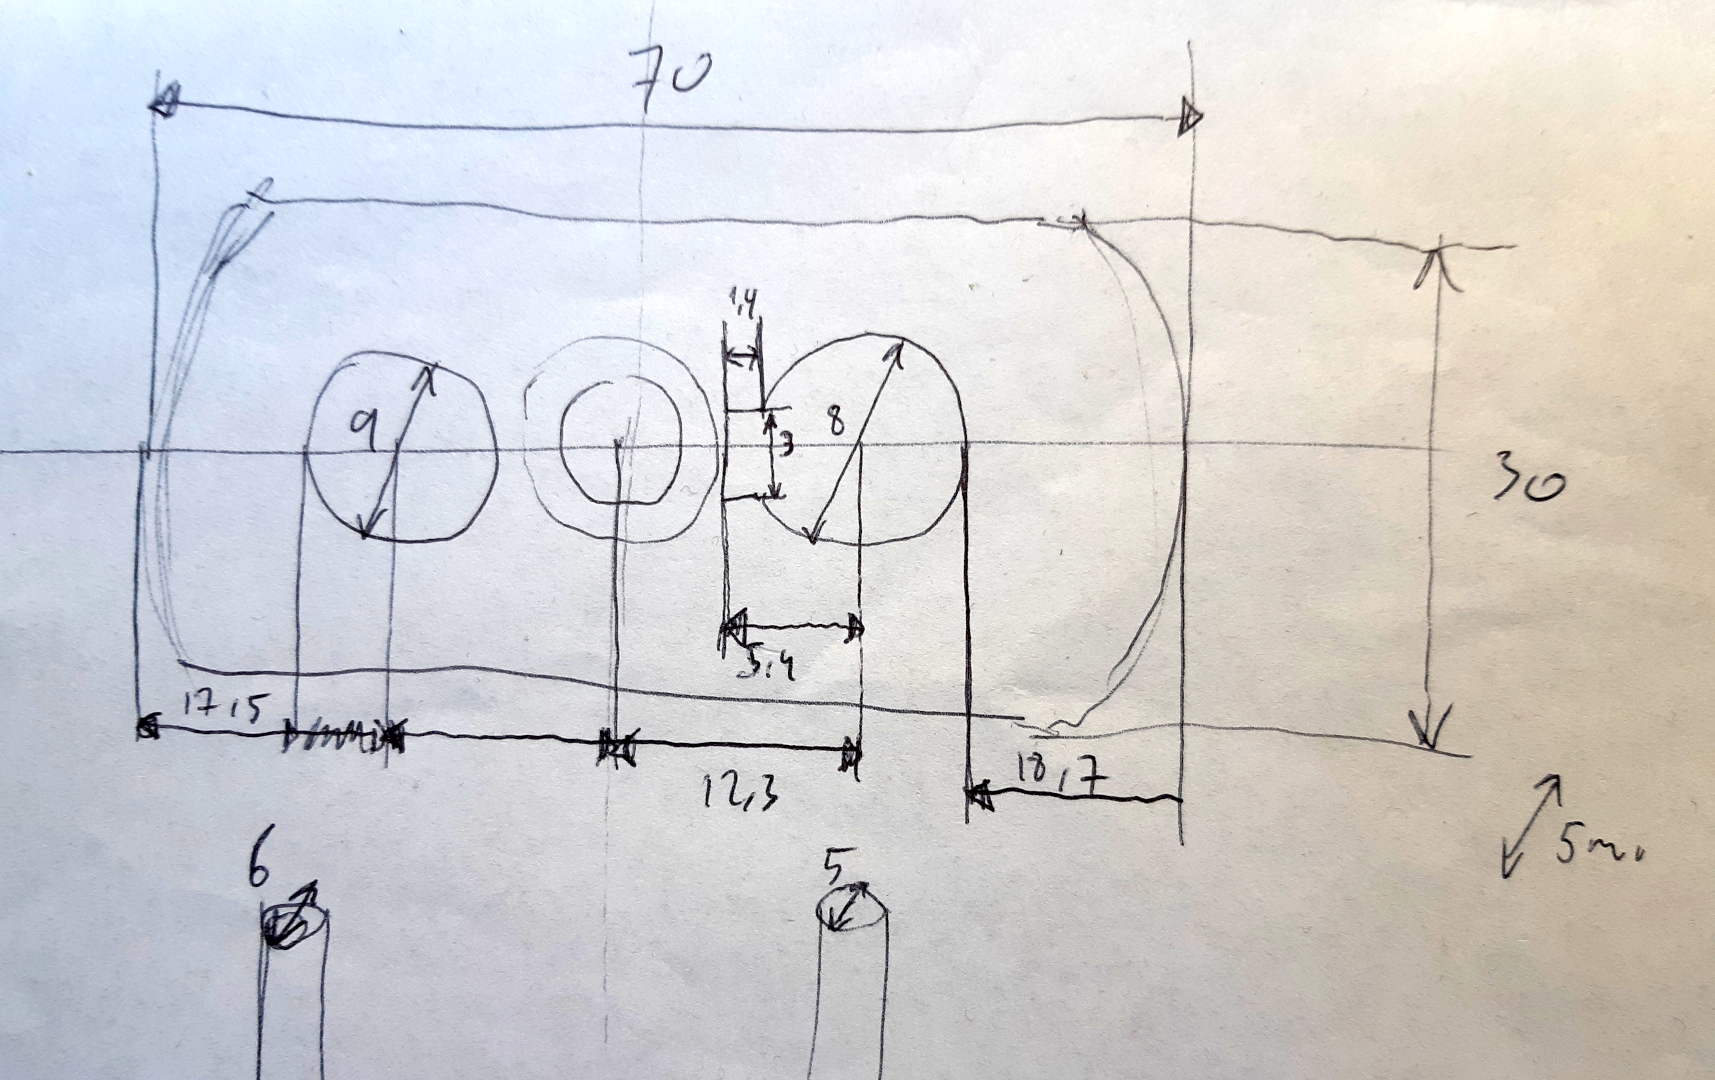 70
1,4
9
8
3
30
5,4
17,5
12,3
18,7
6
5